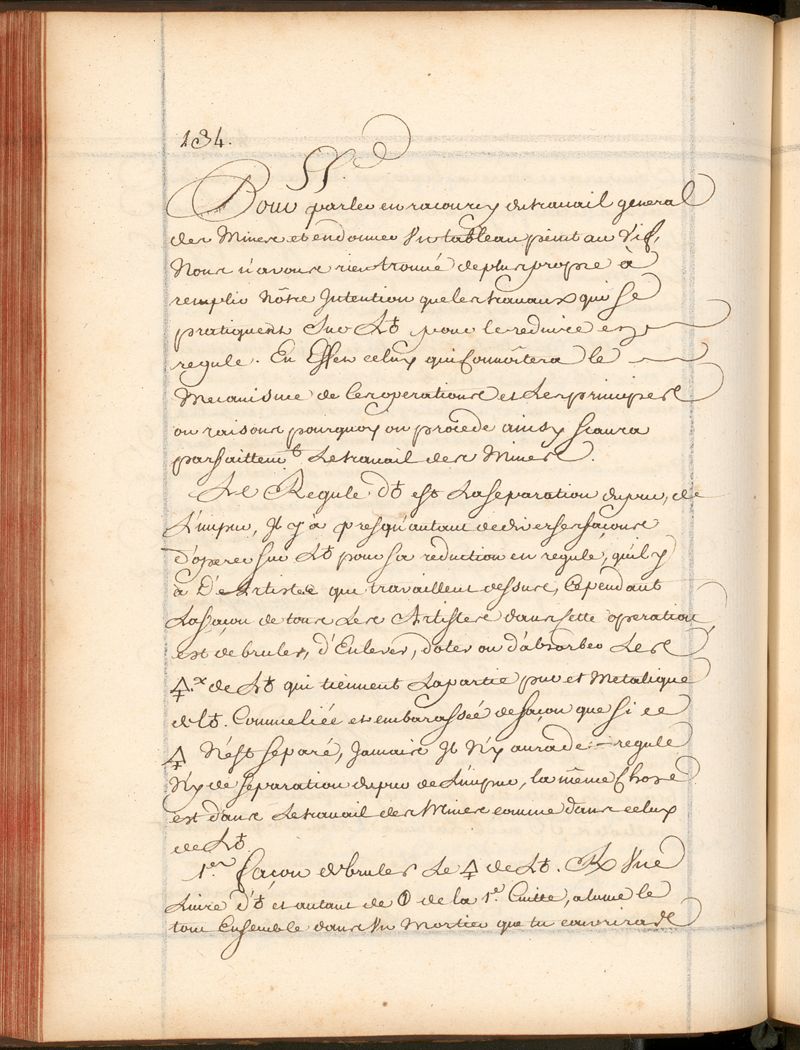 134.
Pour parler en racourcy du travail general
des Mines et en donner Un tableau peint au Vif,
Nous n'avons rien trouvé de plus propre à
remplir Nôtre Intention que les travaux qui se
pratiquent Sur L'♁ pour le reduire en
regule. En Effet celuy qui connoîtera le
Mecanisme de Ces operations et Les principes
ou raisons pourquoy on procede ainsy scaura
parfaittem.t Le travail des Mines.
Le Regule d'♁ est La separation du pur, de
L'impur, Il y a presqu'autant de diverses facons
d'operer sur L'♁ pour sa reduction en regule, qu'il y
à D'Artistes qui travaillent dessus, Cependant
La facon de tous Les Artistes dans cette operation
est de bruler, d'Enlever, d'oter ou d'absorber Les
🜍.x de L'♁ qui tiennent La partie pur et Metalique
de L'♁. Comme liée et embarassée de façon que si ce
🜍 N'est separé, Jamais Il N'y aura de regule
N'y de separation du pur de L'impur, la même Chose
est dans Le travail des Mines comme dans celuy
de L'♁.
1.er facon de bruler Le 🜍 de L'♁. ℞ Une
Livre d'♁ et autant de 🜕 de la 1.e Cuitte, alume le
tout Ensemble dans Un Mortier que tu couvriras